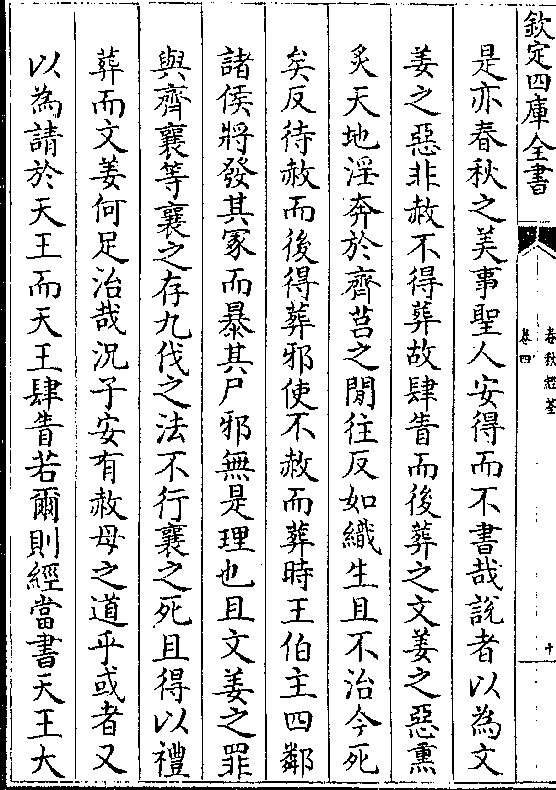 欽定四庫全書
春秋經筌
卷四
十
是亦春秋之美事聖人安得而不書哉說者以為文
姜之惡非赦不得葬故肆眚而後葬之文姜之惡熏
炙天地淫奔於齊莒之閒往反如織生且不治今死
矣反待赦而後得葬邪使不赦而葬時王伯主四鄰
諸侯將發其冢而暴其尸邪無是理也且文姜之罪
與齊襄等襄之存九伐之法不行襄之死且得以禮
葬而文姜何足治哉況子安有赦母之道乎或者又
以為請於天王而天王肆眚若爾則經當書天王大